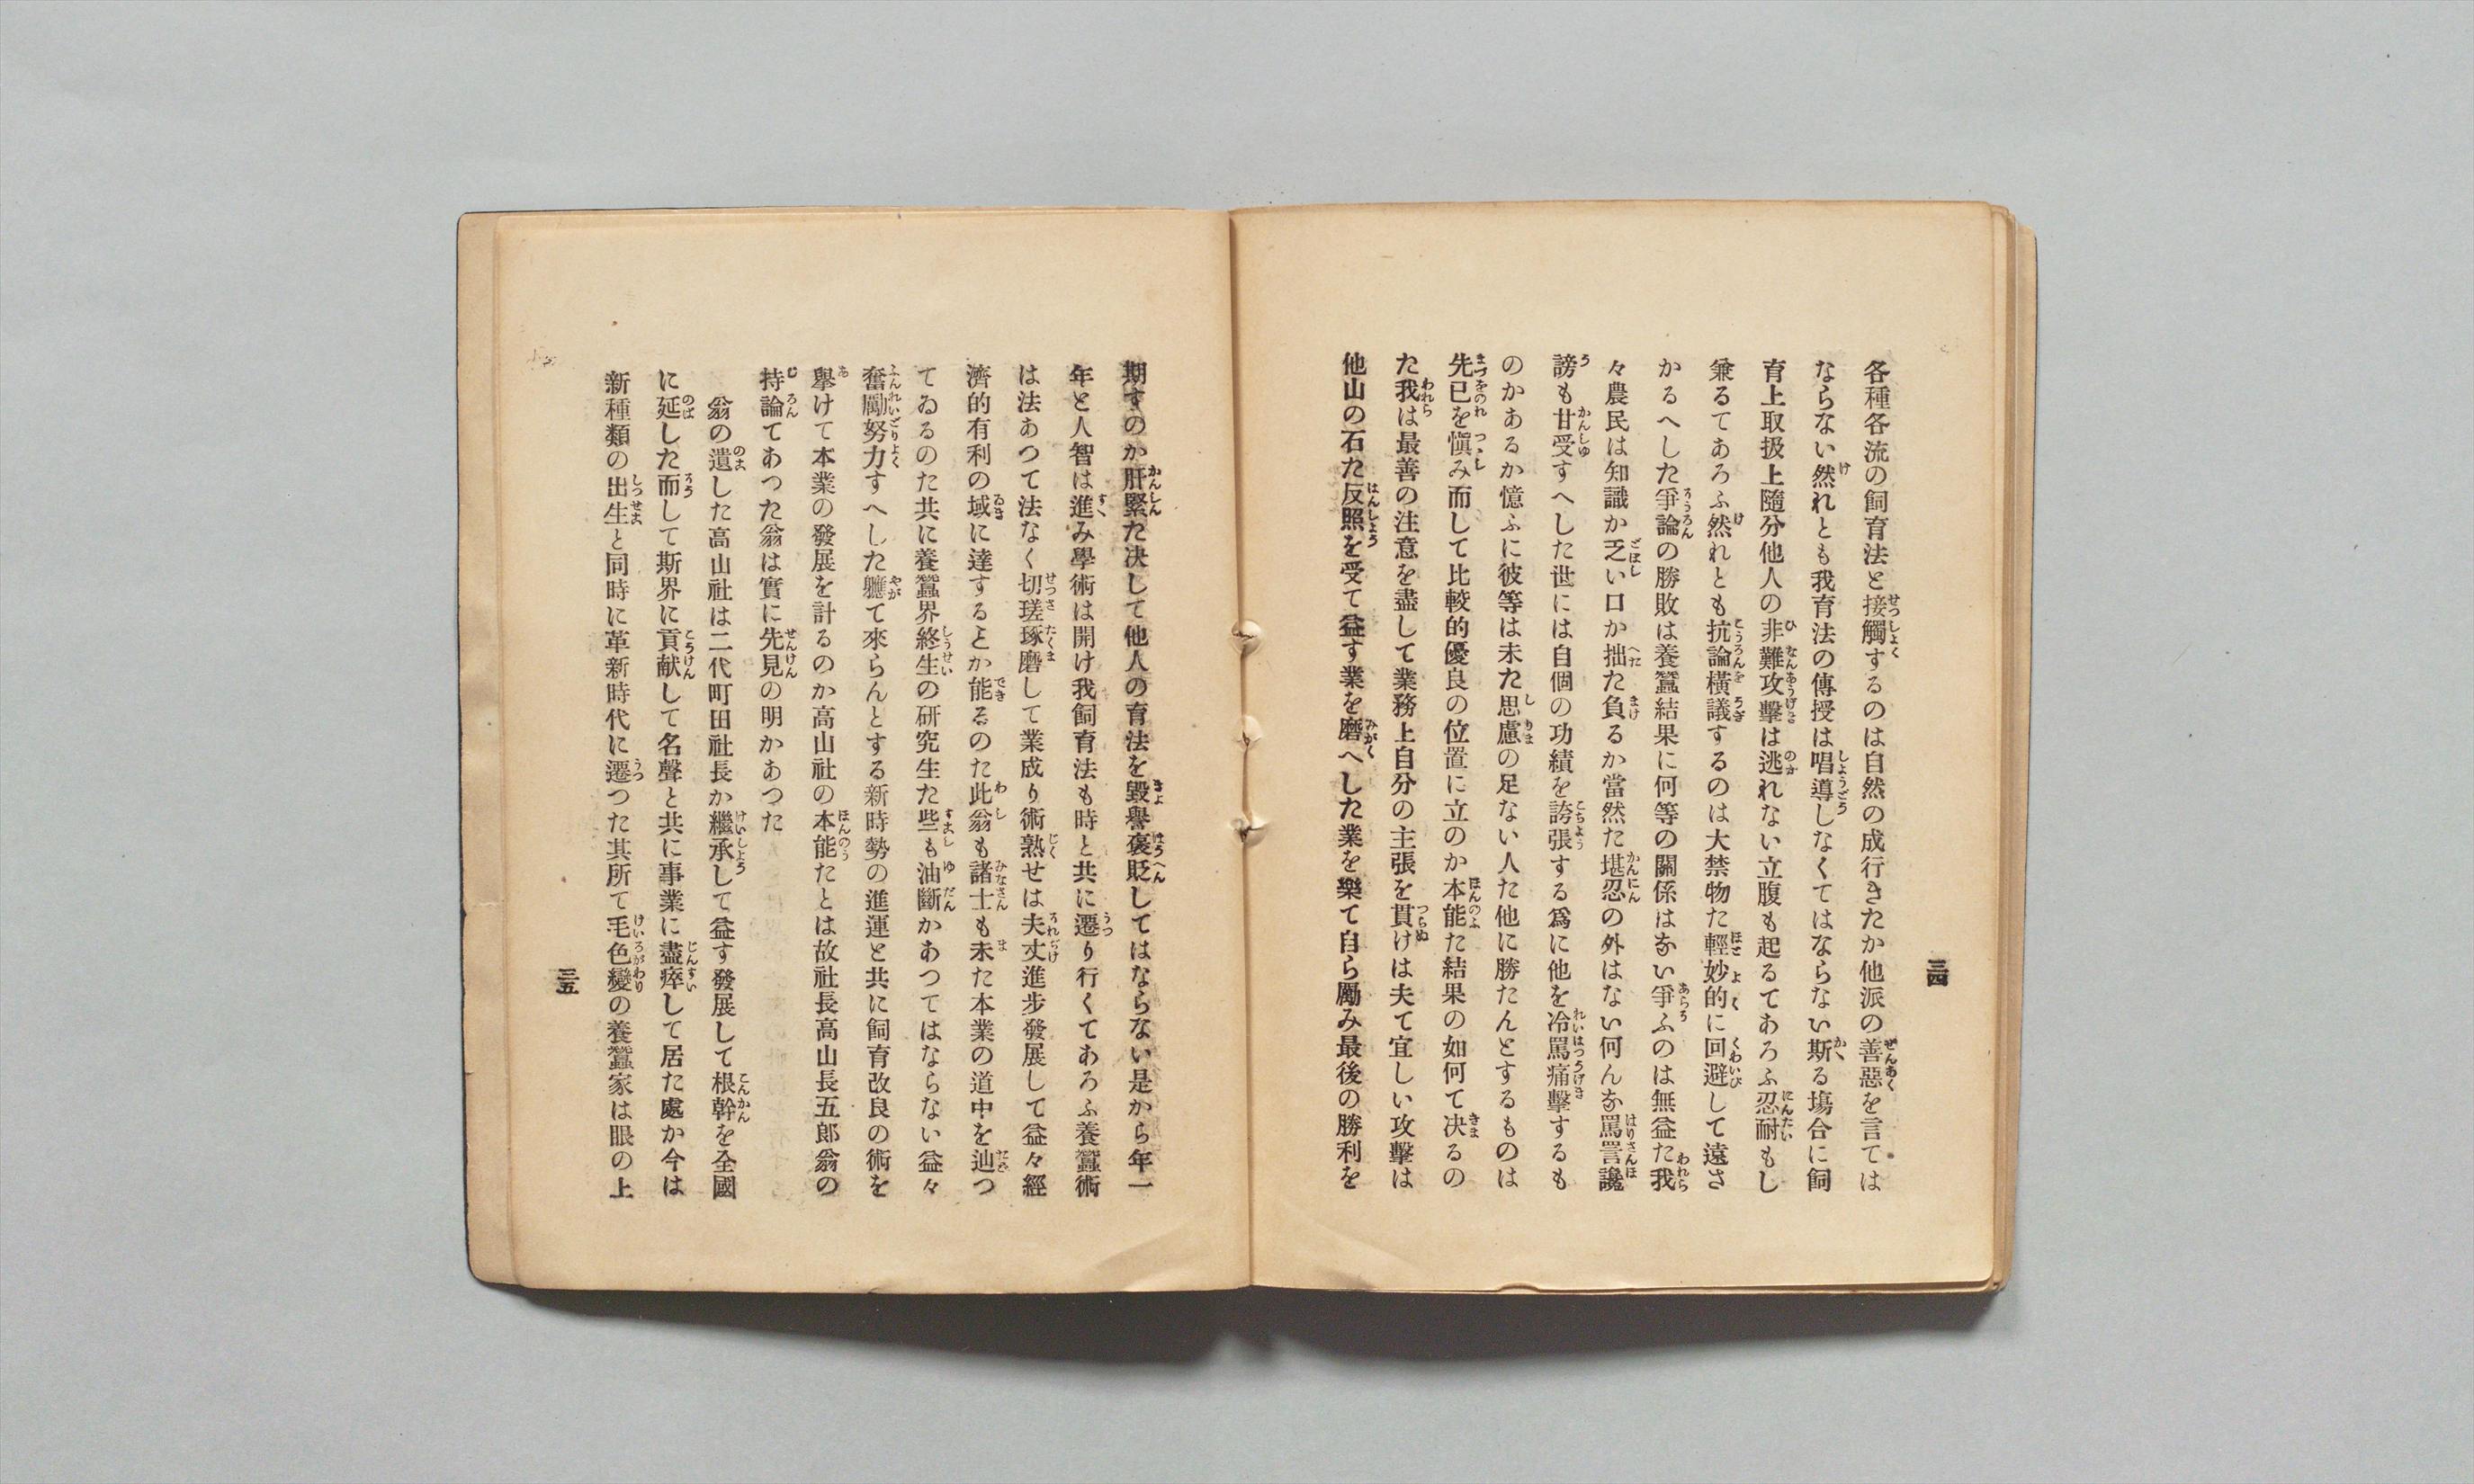 三四
各種各流の飼育法と接觸するのは自然の成行きたか他派の善惡を言ては
ならない然れとも我育法の傳授は唱導しなくてはならない斯る塲合に飼
育上取扱上隨分他人の非難攻擊は逃れない立腹も起るてあろふ忍耐もし
兼るてあろふ然れとも抗論橫議するのは大禁物た輕妙的に回避して遠さ
かるへした爭論の勝敗は養蠶結果に何等の關係はない爭ふのは無益た我
々農民は知識か乏い口か拙た負るか當然た堪忍の外はない何んな罵詈讒
謗も甘受すへした世には自個の功績を誇張する爲に他を冷罵痛擊するも
のかあるか憶ふに彼等は未た思慮の足ない人た他に勝たんとするものは
先已を愼み而して比較的優良の位置に立のか本能た結果の如何て决るの
た我は最善の注意を盡して業務上自分の主張を貫けは夫て宜しい攻擊は
他山の石た反照を受て益す業を磨へした業を樂て自ら勵み最後の勝利を
期すのか肝緊た决して他人の育法を毀譽褒貶してはならない是から年一
年と人智は進み學術は開け我飼育法も時と共に遷り行くてあろふ養蠶術
は法あつて法なく切瑳琢磨して業成り術熟せは夫丈進步發展して益々經
濟的有利の域に達するとか能るのた此翁も諸士も未た本業の道中を辿つ
てゐるのた共に養蠶界終生の研究生た些も油斷かあつてはならない益々
奮勵努力すへした軈て來らんとする新時勢の進運と共に飼育改良の術を
擧けて本業の發展を計るのか高山社の本能たとは故社長高山長五郎翁の
持論てあつた翁は實に先見の明かあつた
翁の遺した高山社は二代町田社長か繼承して益す發展して根幹を全國
に延した而して斯界に貢献して名聲と共に事業に盡瘁して居た處か今は
新種類の出生と同時に革新時代に遷つた其所て毛色變の養蠶家は眼の上
三五